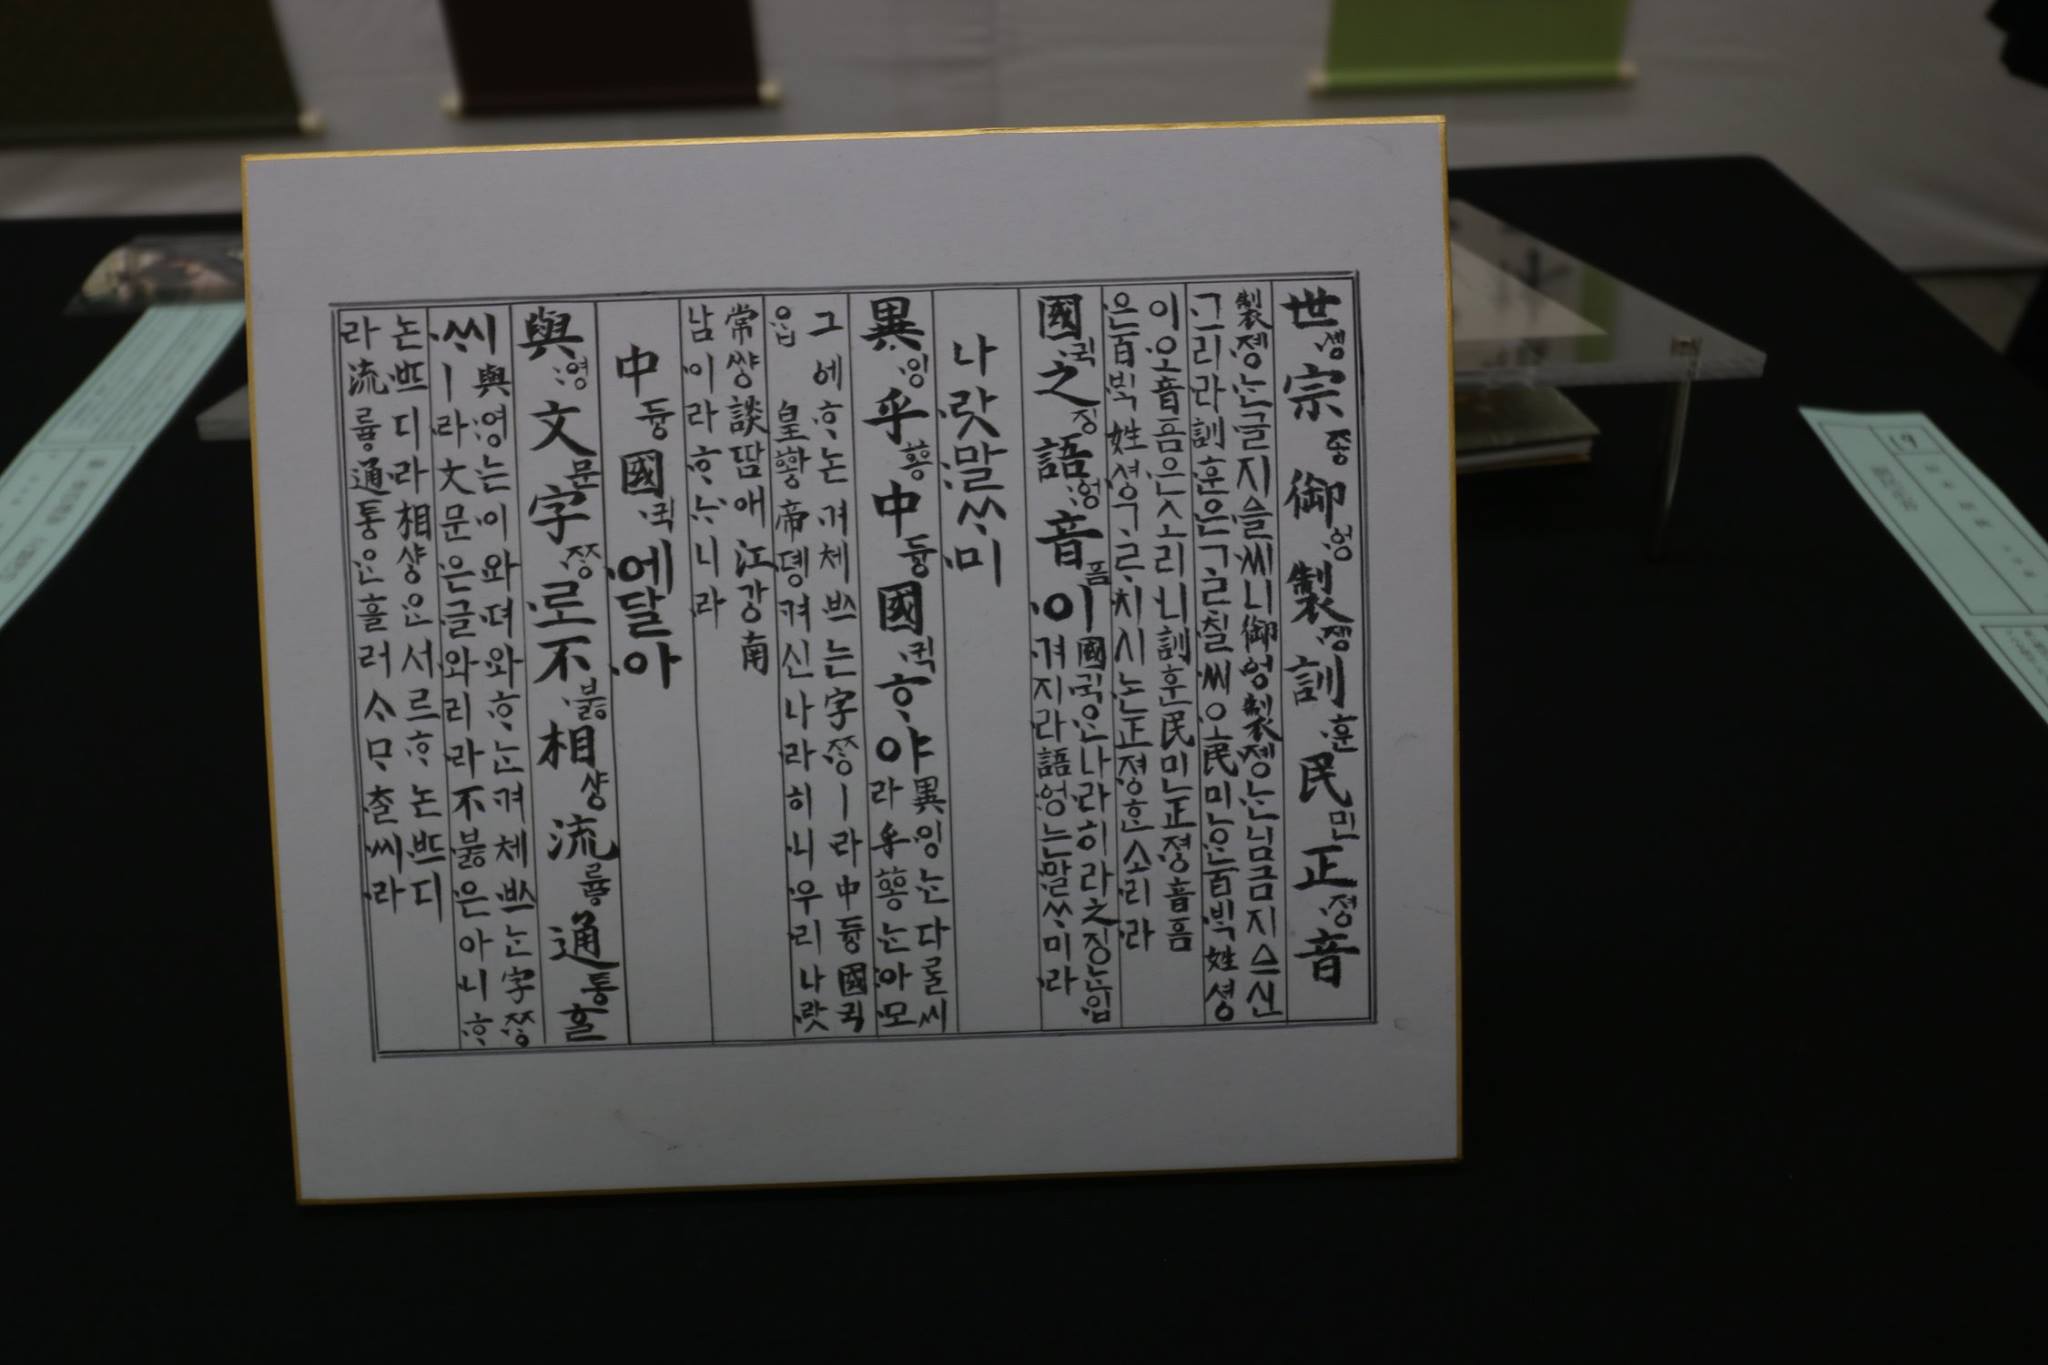 世솅宗조ᇰ御ᅌᅥᆼ製졩訓훈民민正져ᇰ音
製졩ᄂᆞᆫ글지슬씨니御ᅌᅥᆼ製졩ᄂᆞᆫ님금지스신
그리라訓훈은ᄀᆞᄅᆞ칠씨오民민ᄋᆞᆫ百ᄇᆡᆨ姓셔ᇰ
이오音음은소리니訓훈民민正져ᇰ音흠
은百ᄇᆡᆨ姓셔ᇰᄀᆞᄅᆞ치시논正져ᇰᄒᆞᆫ소리라
國귁之징語ᅌᅥᆼ音ᅙᅳᆷ이
國귁ᄋᆞᆫ나라히라之징ᄂᆞᆫ입
겨지라語ᅌᅥᆼ는말ᄊᆞ미라
나랏말ᄊᆞ미
異잉乎ᅘᅩᆼ中듀ᇰ國귁ᄒᆞ야
異잉ᄂᆞᆫ다ᄅᆞᆯ씨
라乎ᅘᅩᆼᄂᆞᆫ아모
그ᅌᅦᄒᆞ논겨체ᄡᅳ는字ᄍᆞᆼㅣ라中듀ᇰ國귁
皇ᅘᅪᇰ帝뎽겨신나라히니우리나랏
常썅談땀애江가ᇰ南
남이라ᄒᆞᄂᆞ니라
中듀ᇰ國귁에달아
與영文문字ᄍᆞᆼ로不부ᇙ相샤ᇰ流류ᇢ通토ᇰᄒᆞᆯ
씨與영는이와뎌와ᄒᆞᄂᆞᆫ겨체ᄡᅳᄂᆞᆫ字ᄍᆞᆼ
ㅣ라文문은글와리라不부ᇙ은아니ᄒᆞ
논ᄠᅳ디라相샤ᇰᄋᆞᆫ서르ᄒᆞ논ᄠᅳ디
라流류ᇢ通토ᇰᄋᆞᆫ흘러ᄉᆞᄆᆞᄎᆞᆯ씨라